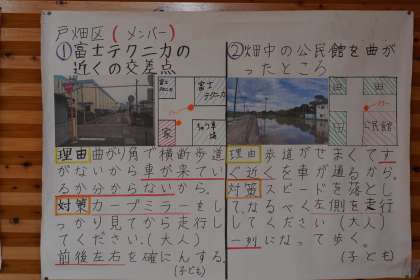 戸畑区(メンバー)
①富士テクニカの
近くの交差点
富士
テクニカ
家
理由曲がり角で横断歩道
がないから車が来てい
るか分からないから。
対策カーブミラーをし
っかり見てから走行し
てください。(大人)
前後左右を確にんする。
(子ども)
②畑中の公民館を曲が
ったところ
田
田
田
公民館
理由歩道がせまくてす
ぐ近くを車が通るから。
対策スピードを落とし
て、なるべく左側を走行
してください(大人)
一列になって歩く。
(子ども)